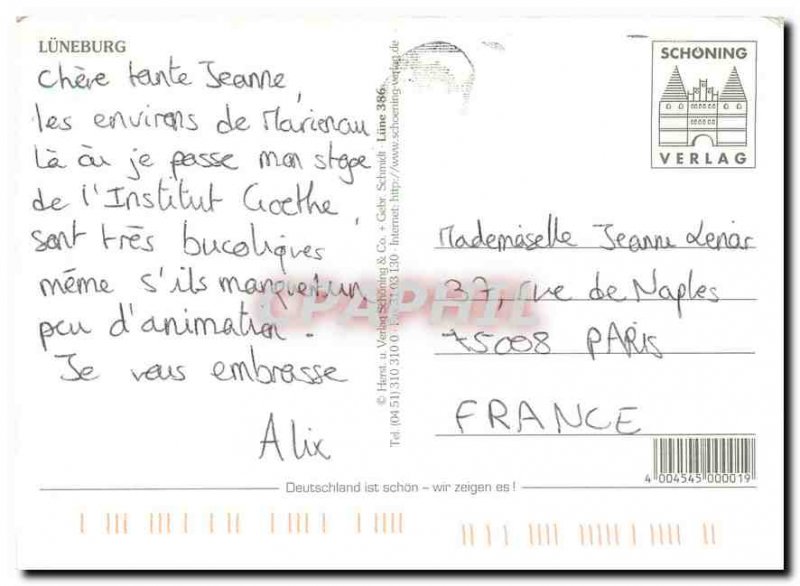 LÜNEBURG
Chère tante Jeanne,
les environs de Marienau
là où je passe mon stage
de l'Institut Goethe,
sont très bucoliques
même s'ils manquent un
peu d'animation.
Je vous embrasse
Alix
© Herst. u. Verlag Schöning & Co. + Gebr. Schmidt · Lüne 386
Tel. (04 51) 310 310 0 · Internet: http://www.schoening-verlag.de
SCHÖNING
VERLAG
Mademoiselle Jeanne
37, rue de Naples
75008 PARIS
FRANCE
4 004545 000019
Deutschland ist schön – wir zeigen es!
CPAPHIL